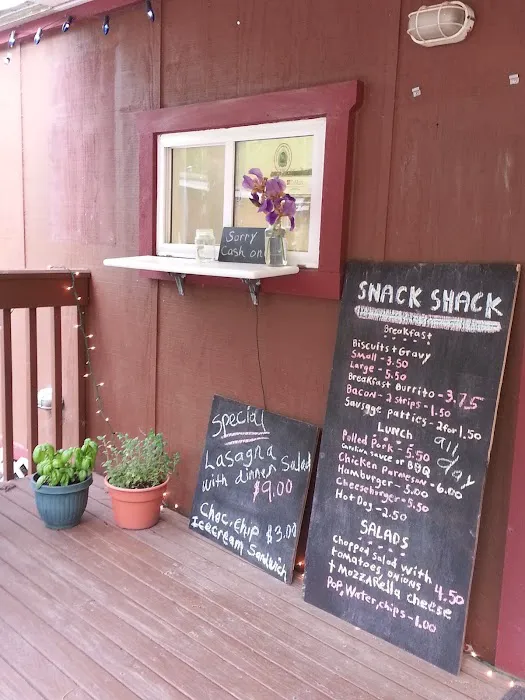 Sorry
Cash on
Special
Lasagna
with dinner Salad
$9.00
Choc. Chip $3.00
Icecream Sandwich
SNACK SHACK
Breakfast
Biscuits + Gravy
Small - 3.50
Large - 5.50
Breakfast Burrito - 3.75
Bacon - 2 strips - 1.50
Sausgge patties - 2 for 1.50
LUNCH
all day
Pulled Pork - 5.50
Carolina sauce or BBQ
Chicken Parmesan - 6.00
Hamburger - 5.00
Cheeseburger - 5.50
Hot Dog - 2.50
SALADS
Chopped Salad with
tomatoes, onions
+ Mozzarella cheese 4.50
Pop, Water, chips - 1.00